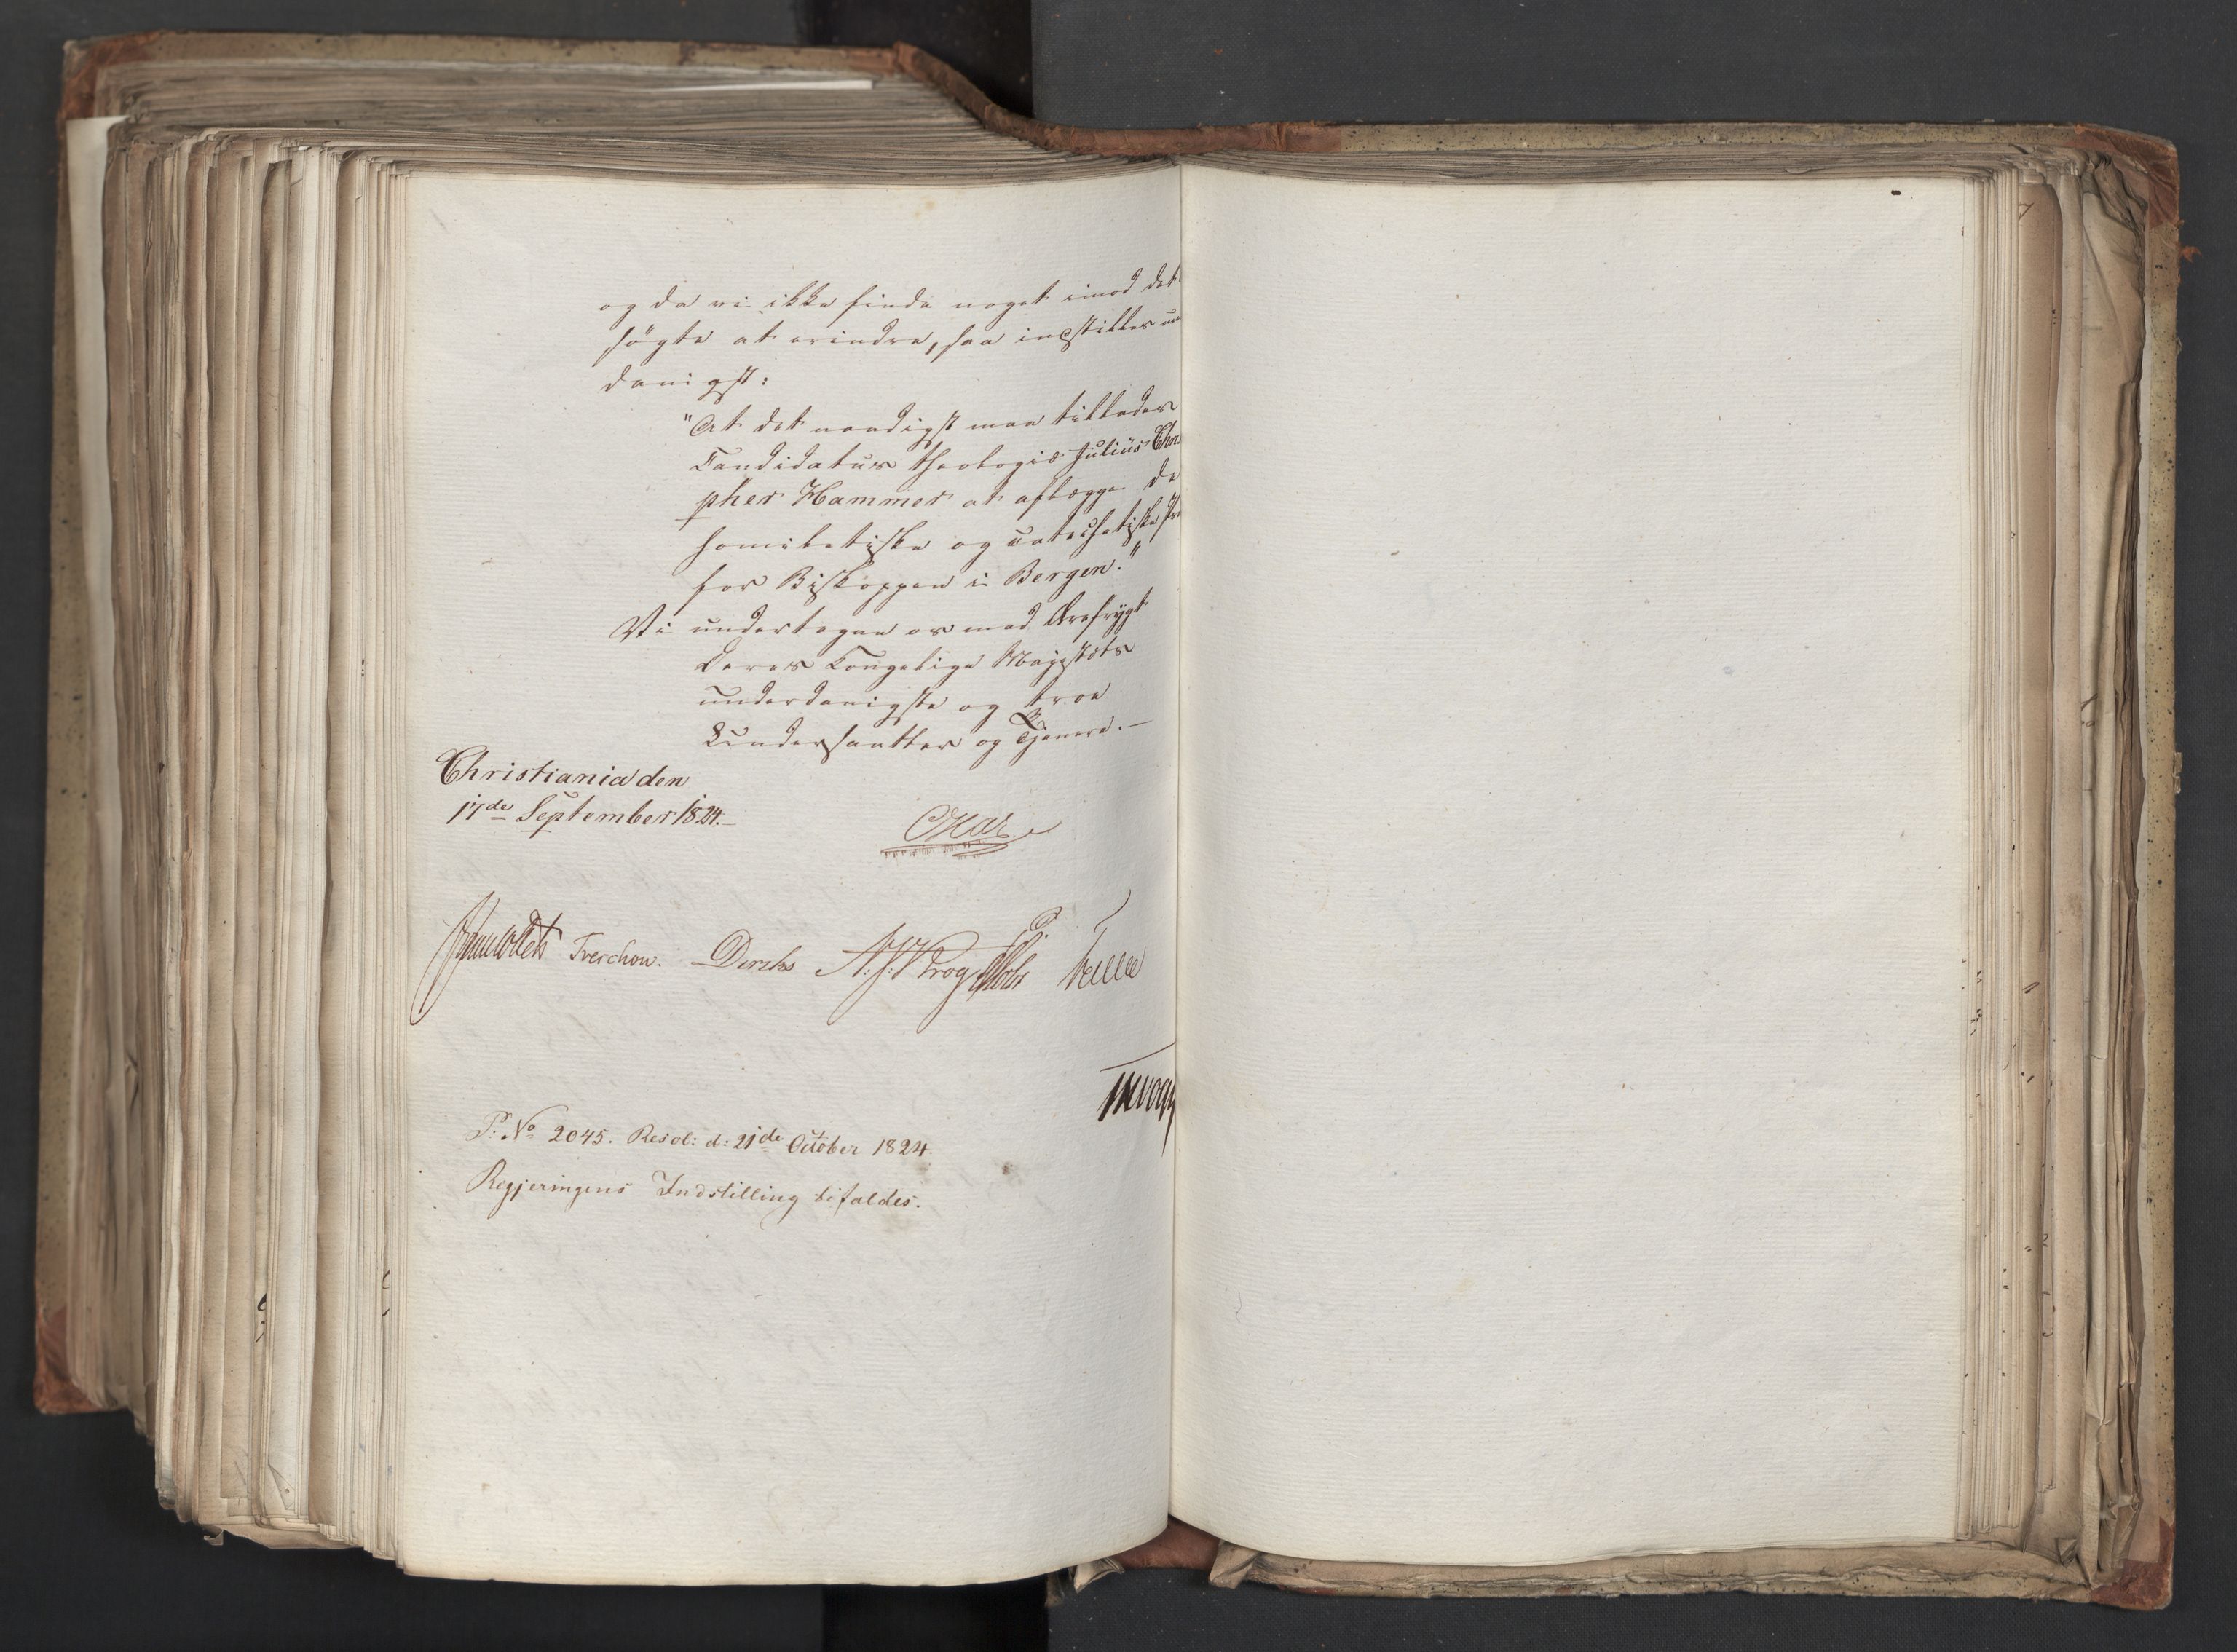 og da vi ikke finde noget imod det
søgte at erindre, saa indstilles un
danigst:
"At det naadigst maa tillades
Candidatus theologiæ Julius Chri
pher Hammer at aflægge de
homiletiske og catechetiske Pr
for Biskoppen i Bergen."
Vi undertegne os med Ærefrygt
Deres Kongelige Majestæts
underdanigste og troe
Undersaatter og Tjenere.—
Christiania den
17de September 1824.—
Jonas Collett Treschow. Diriks A. J. Krog
P: No 2045. Resol: d: 21de October 1824.
Regjeringens Indstilling bifaldes.